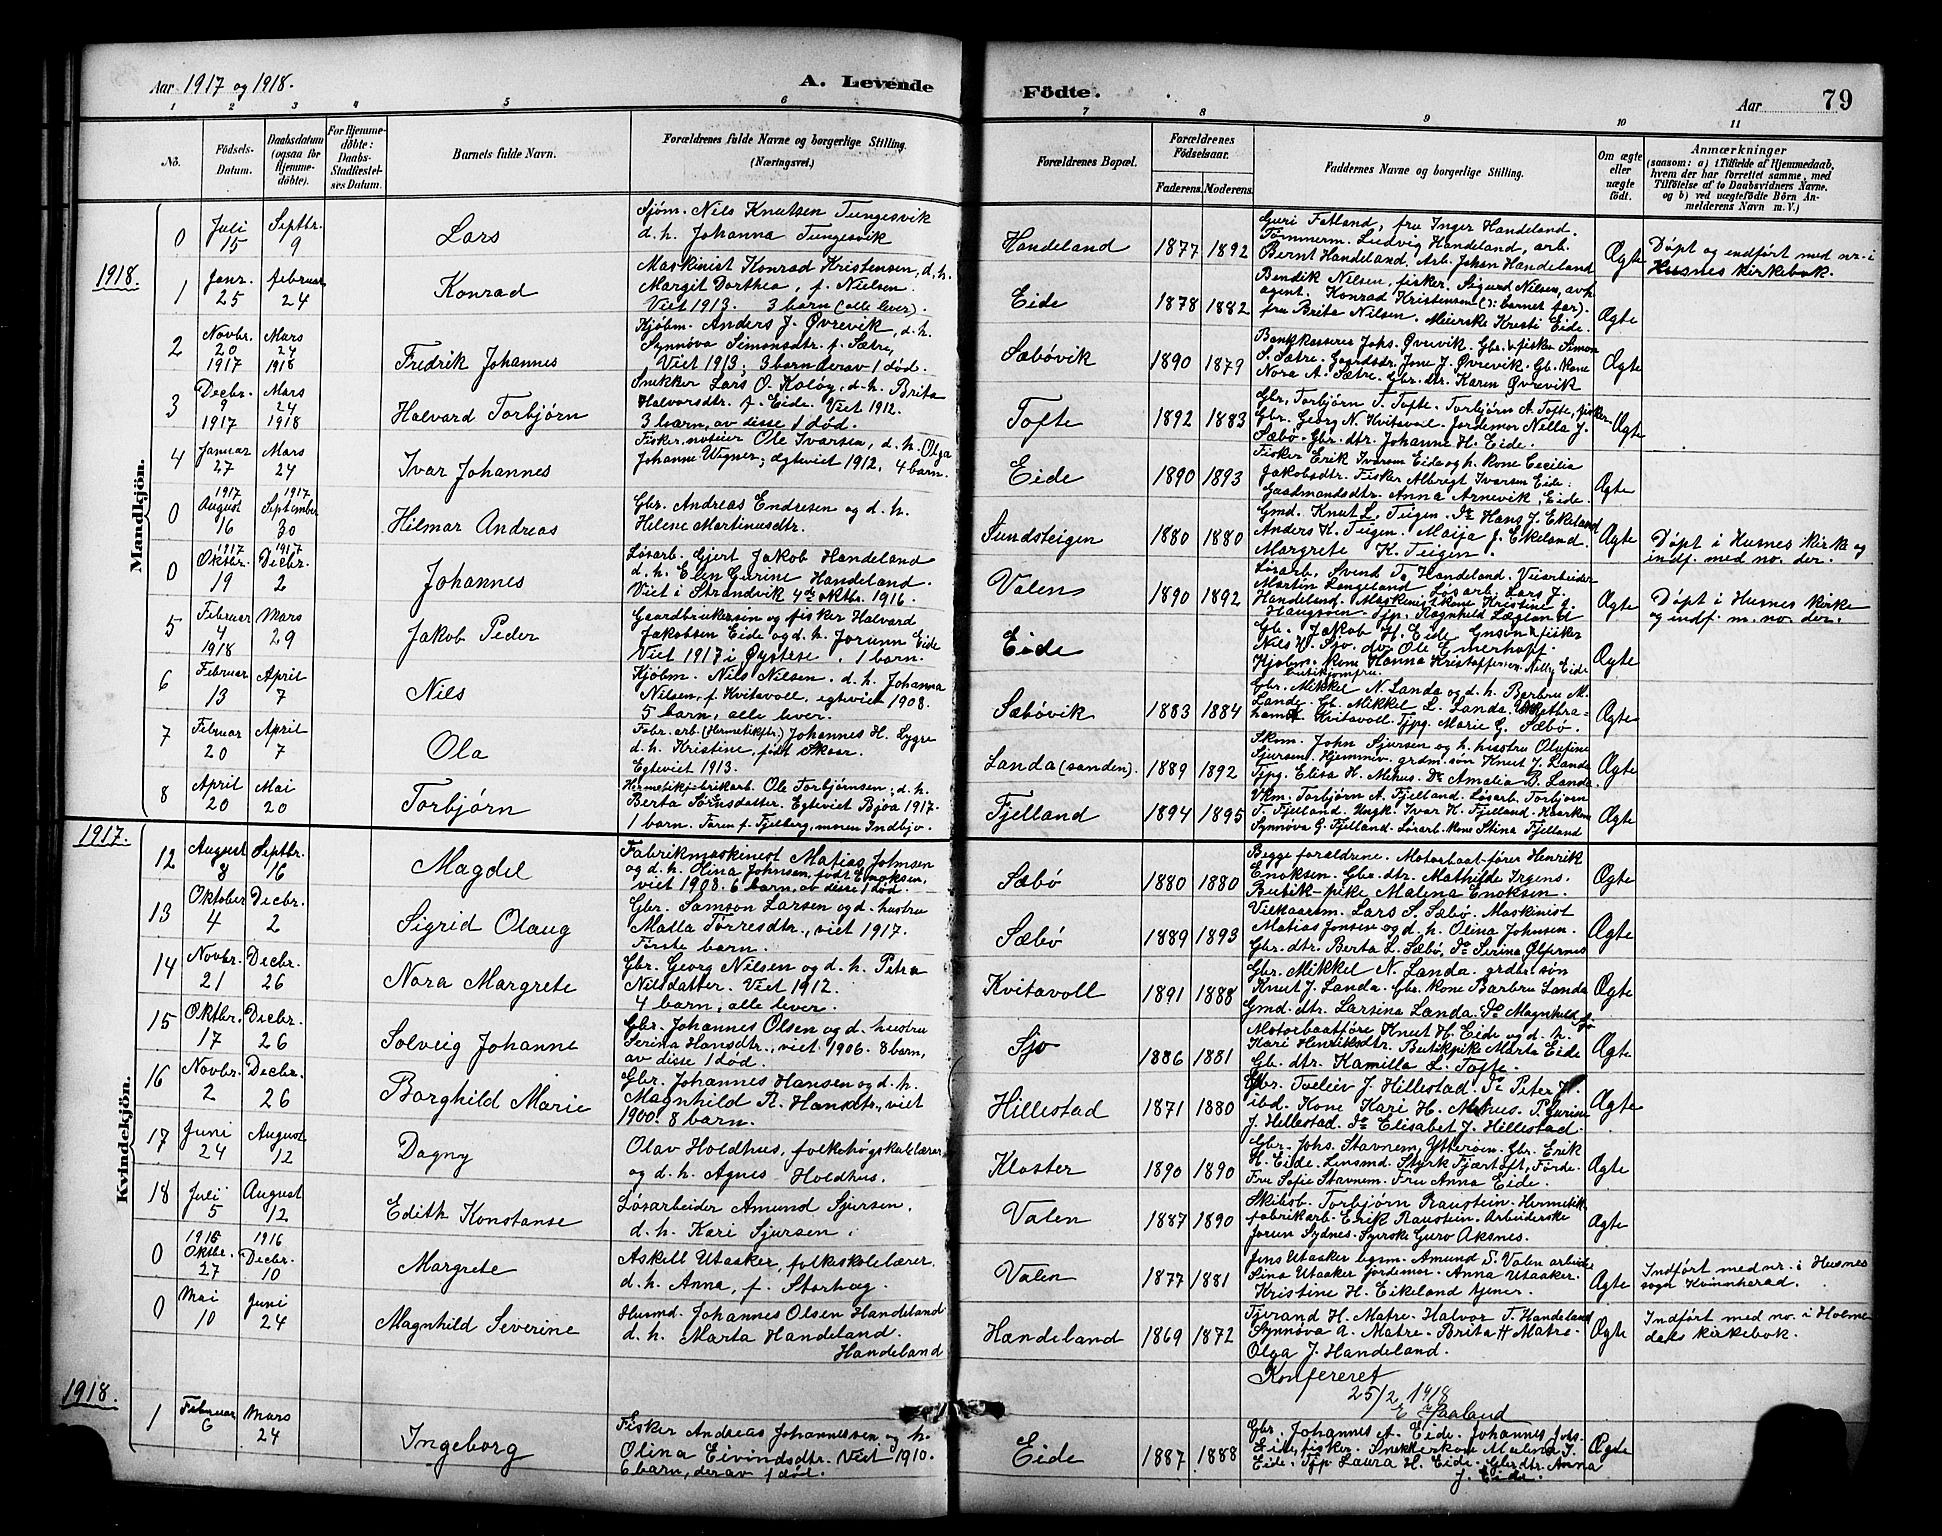 Aar 1917 og 1918.
A. Levende
Födte.
Aar
79
1 2 3 4 5 6 7 8 9 10 11
No.
Födsels-Datum.
Daabsdatum (ogsaa for Hjemme-döbte).
For Hjemme-döbte: Daabs-Stadfæstelses Datum.
Barnets fulde Navn.
Forældrenes fulde Navne og borgerlige Stilling.
(Næringsvei.)
Forældrenes Bopæl.
Forældrenes Födselsaar.
Faderens. Moderens.
Faddernes Navne og borgerlige Stilling.
Om ægte eller uægte födt.
Anmærkninger
(saasom: a) i Tilfælde af Hjemmedaab,
hvem der har forrettet samme, med
Tilföielse af to Daabsvidners Navne,
og b) ved uægtefödte Börn An-
melderens Navn m. V.)
Mandkjön.
0 Juli 15 Septbr. 9 Lars
Sjøm. Nils Knutsen Tungesvik
d. h. Johanna Tungesvik
Handeland 1877 1892
Guri Fatland, fru Inger Handeland.
Tømmerm. Ludvig Handeland, arb.
Bernt Handeland, Arb. Johan Handeland
Ægte
Døpt og indført med nr. i
Husnes kirkebok.
1918.
1 Janr. 25 Februar 24 Konrad
Maskinist Konrad Kristensen, d. h.
Margit Dorthea, f. Nielsen.
Viet 1913. 3 barn (alle lever).
Eide 1878 1882
Bendik Nilsen, fisker. Sigurd Nilsen, avh.
agent. Konrad Kristensen (o: barnet far).
fru Brita Nilsen. Meierske Kristi Eide.
Ægte
2 Novbr. 20 1917 Mars 24 1918 Fredrik Johannes
Kjøbm. Anders J. Øvrevik, d. h.
Synnøva Simonsdtr. f. Sætre,
Viet 1913; 3 barn derav 1 død.
Sæbövik 1890 1879
Bankkasserer Johs. Øvrevik. Gbr. & fisker Simon
S. Sætre. Gaardsdr. Jone J. Øvrevik. Gb. Kone
Nora A. Sætre. Gbr. dtr. Karen Øvrevik
Ægte
3 Decbr. 9 1917 Mars 24 1918 Halvard Torbjørn
Snekker Lars O. Koløy, d. h. Brita
Halvorsdtr. f. Eide. Viet 1912.
3 barn, av disse 1 død.
Tofte 1892 1883
Gbr. Torbjørn T. Tofte. Torbjørn A. Tofte, fisker
Gbr. Georg N. Kvitavoll. Jordemor Nilla J.
Sæbø. Gbr. dtr. Johanne H. Eide.
Ægte
4 Januar 27 Mars 24 Ivar Johannes
Fisker, noteier Ole Ivarsen, d. h. Olga
Johanne Wgner; ægteviet 1912. 4 barn.
Eide 1890 1893
Fisker Erik Ivarsen Eide og h. kone Cecilia
Jakobsdtr. Fisker Albregt Ivarsen Eide.
Gaardmandsdtr. Anna Arnevik Eide.
Ægte
0 1917 August 16 1917 September 30 Hilmar Andreas
Gbr. Andreas Endresen og d. h.
Helene Martinusdtr.
Sundsteigen 1880 1880
Gmd. Knut L. Teigen. Do Hans J. Ekeland
Anders K. Teigen. Maija J. Ekeland.
Margrete K. Teigen.
Ægte
Døpt i Husnes kirke og
indf. med no. der.
0 1917 Oktbr. 19 1917 Decbr. 2 Johannes
Løsarb. Gjert Jakob Handeland
d. h. Elen Gurine Handeland.
Viet i Strandvik 4de oktbr. 1916.
Valen 1890 1892
Løsarb. Svend T. Handeland. Veiarbeider
Martin Langeland. Løsarb. Lars J.
Handeland. Maskinistkone Kristine J.
Haugven. Tjp. Ragnhild Lægland
Ægte
Døpt i Husnes kirke
og indf. m. no. der.
5 Februar 4 1918 Mars 29 Jakob Peder
Gaardbrukersön og fisker Halvard
Jakobsen Eide og d. h. Jorunn Eide
Viet 1917 i Øystese. 1 barn.
Eide
Gb. Jakob H. Eide Gmsøn & fisker
Nils V. Sjo. dr. Ole Emerhoff.
Kjøbm. kone Hanna Kristoffersen. Nelly Eide
butikjomfru.
Ægte
6 Februar 13 April 7 Nils
Kjøbm. Nils Nilsen. d. h. Johanna
Nilsen, f. Kvitavoll, egteviet 1908.
5 barn, alle lever.
Sæbövik 1883 1884
Gbr. Mikkel N. Landa og d. h. Barbru M.
Landa. Gb. Mikkel L. Landa.
Kvitavoll. Tjpg. Marie G. Sæbø.
Ægte
7 Februar 20 April 7 Ola
Fabr. arb. (Hermetikftr.) Johannes H. Lygre
d. h. Kristine, født Skaar.
Egteviet 1913.
Landa (sanden). 1889 1892
Skom. John Sjursen og h. hustru Olufine
Sjursen. Hjemmev. grdm. søn Knut J. Landa
Tjpg. Elisa H. Mehus. Do Amalia B. Landa.
Ægte
8 April 20 Mai 20 Torbjørn
Hermetikfabrikarb. Ole Torbjørnsen; d. h.
Berta Sørensdatter. Egteviet Bjoa 1917.
1 barn. Faren f. Fjelberg, moren Indbjo.
Fjelland 1894 1895
Vkm. Torbjørn A. Fjelland. Løsarb. Torbjørn
T. Fjelland. Ungk. Ivar K. Fjelland. Kaarkone
Synnøva G. Fjelland. Løsarb. kone Stina Fjelland
Ægte
1917.
Kvindekjön.
12 August 8 Septbr. 16 Magdel
Fabrikmaskinest Matias Johnsen
og d. h. Olina Johnsen, født Enoksen,
viet 1908. 6 barn, av disse 1 død.
Sæbö 1880 1880
Begge forældrene. Motorbaat-fører Henrik
Enoksen. Gbr. dtr. Mathilde Irgens.
Butik-pike Malena Enoksen.
Ægte
13 Oktober 4 Decbr. 2 Sigrid Olaug
Gbr. Samson Larsen og d. hustru
Malla Torresdtr., viet 1917.
Første barn.
Sæbö 1889 1893
Vilkaarsm. Lars S. Sæbø. Maskinist
Matias Jonsen og d. h. Olina Johnsen.
Gbr. dtr. Berta L. Sæbø, Do Serina Ølfernes
Ægte
14 Novbr. 21 Decbr. 26 Nora Margrete
Gbr. Georg Nilsen og d. h. Petra
Nilsdatter. Viet 1912.
4 barn, alle lever.
Kvitavoll 1891 1888
Gbr. Mikkel N. Landa. grdbr. søn
Knut J. Landa. Gbr. kone Barbru Landa
Gmd. dtr. Larsina Landa. Do Magnhild Sjo
Ægte
15 Oktbr. 17 Decbr. 26 Solveig Johanne
Gbr. Johannes Olsen og d. hustru
Serina Hansdtr., viet 1906. 8 barn,
av disse 1 død.
Sjo 1886 1881
Motorbaatføre Knut H. Eide og d. h.
Kari Henriksdtr. Butikpike Marta Eide
Gb. dtr. Kamilla L. Tofte.
Ægte
16 Novbr. 2 Decbr. 26 Borghild Marie
Gbr. Johannes Hansen og d. h.
Magnhild R. Hansdtr., viet
1900. 8 barn.
Hillestad 1871 1880
Gbr. Tveleiv J. Hillestad. Do Peter H.
ibd. Kone Kari H. Mehus. P. Gurine
J. Hillestad. Do Elisabet J. Hillestad.
Ægte
17 Juni 24 August 12 Dagny
Olav Holdhus, folkehøgskolelærer
og d. h. Agnes Holdhus.
Kloster 1890 1890
Gbr. Johs. Stavnem, Ytterøen. Gbr. Erik
H. Eide. Lensmd. Styrk Fjærtoft, Førde.
Fru Sofie Stavnem. Fru Anna Eide.
Ægte
18 Juli 5 August 12 Edith Konstanse
Løsarbeider Amund Sjursen,
d. h. Kari Sjursen.
Valen 1887 1890
Skibsb. Torbjørn Raustein. Hermetik-
fabrikarb. Erik Raustein. Arbeiderske
Jorun Sydnes. Syerske Guro Aksnes.
Ægte
0 1916 Oktbr. 27 1916 Decbr. 10 Margrete
Askell Utaaker, folkeskolelærer,
d. h. Anna, f. Storhaug.
Valen 1877 1881
Jens Utaaker bgm. Amund S. Valen arbeide
Sina Utaaker jordemor. Anna Utaaker.
Kristine H. Eikeland tjener.
Ægte
Indført med nr. i Husnes
sogn Kvinnherad.
0 Mai 10 Juni 24 Magnhild Severine
Husmd. Johannes Olsen Handeland
d. h. Marta Handeland.
Handeland
Handeland 1869 1872
Tjerand H. Matre. Halvor T. Handeland
Synnøva A. Matre. Brita H Matre.
Olga J. Handeland.
Ægte
Indført med no. i Holme
dals kirkebok.
Konfereret
25/2 1918
E Haaland
1918.
1 Februar 6 Mars 24 Ingeborg
Fisker Andreas Johannessen og h.
Olina Eivindsdtr. Viet 1910.
6 barn, derav 1 død.
Eide 1887 1888
Gbr. Johannes A. Eide. Johannes Johs.
Eide, fisker. Snekkerkone Malena J.
Eide. Tjp. Laura H. Eide. Gbr dtr. Anna
J. Eide.
Ægte